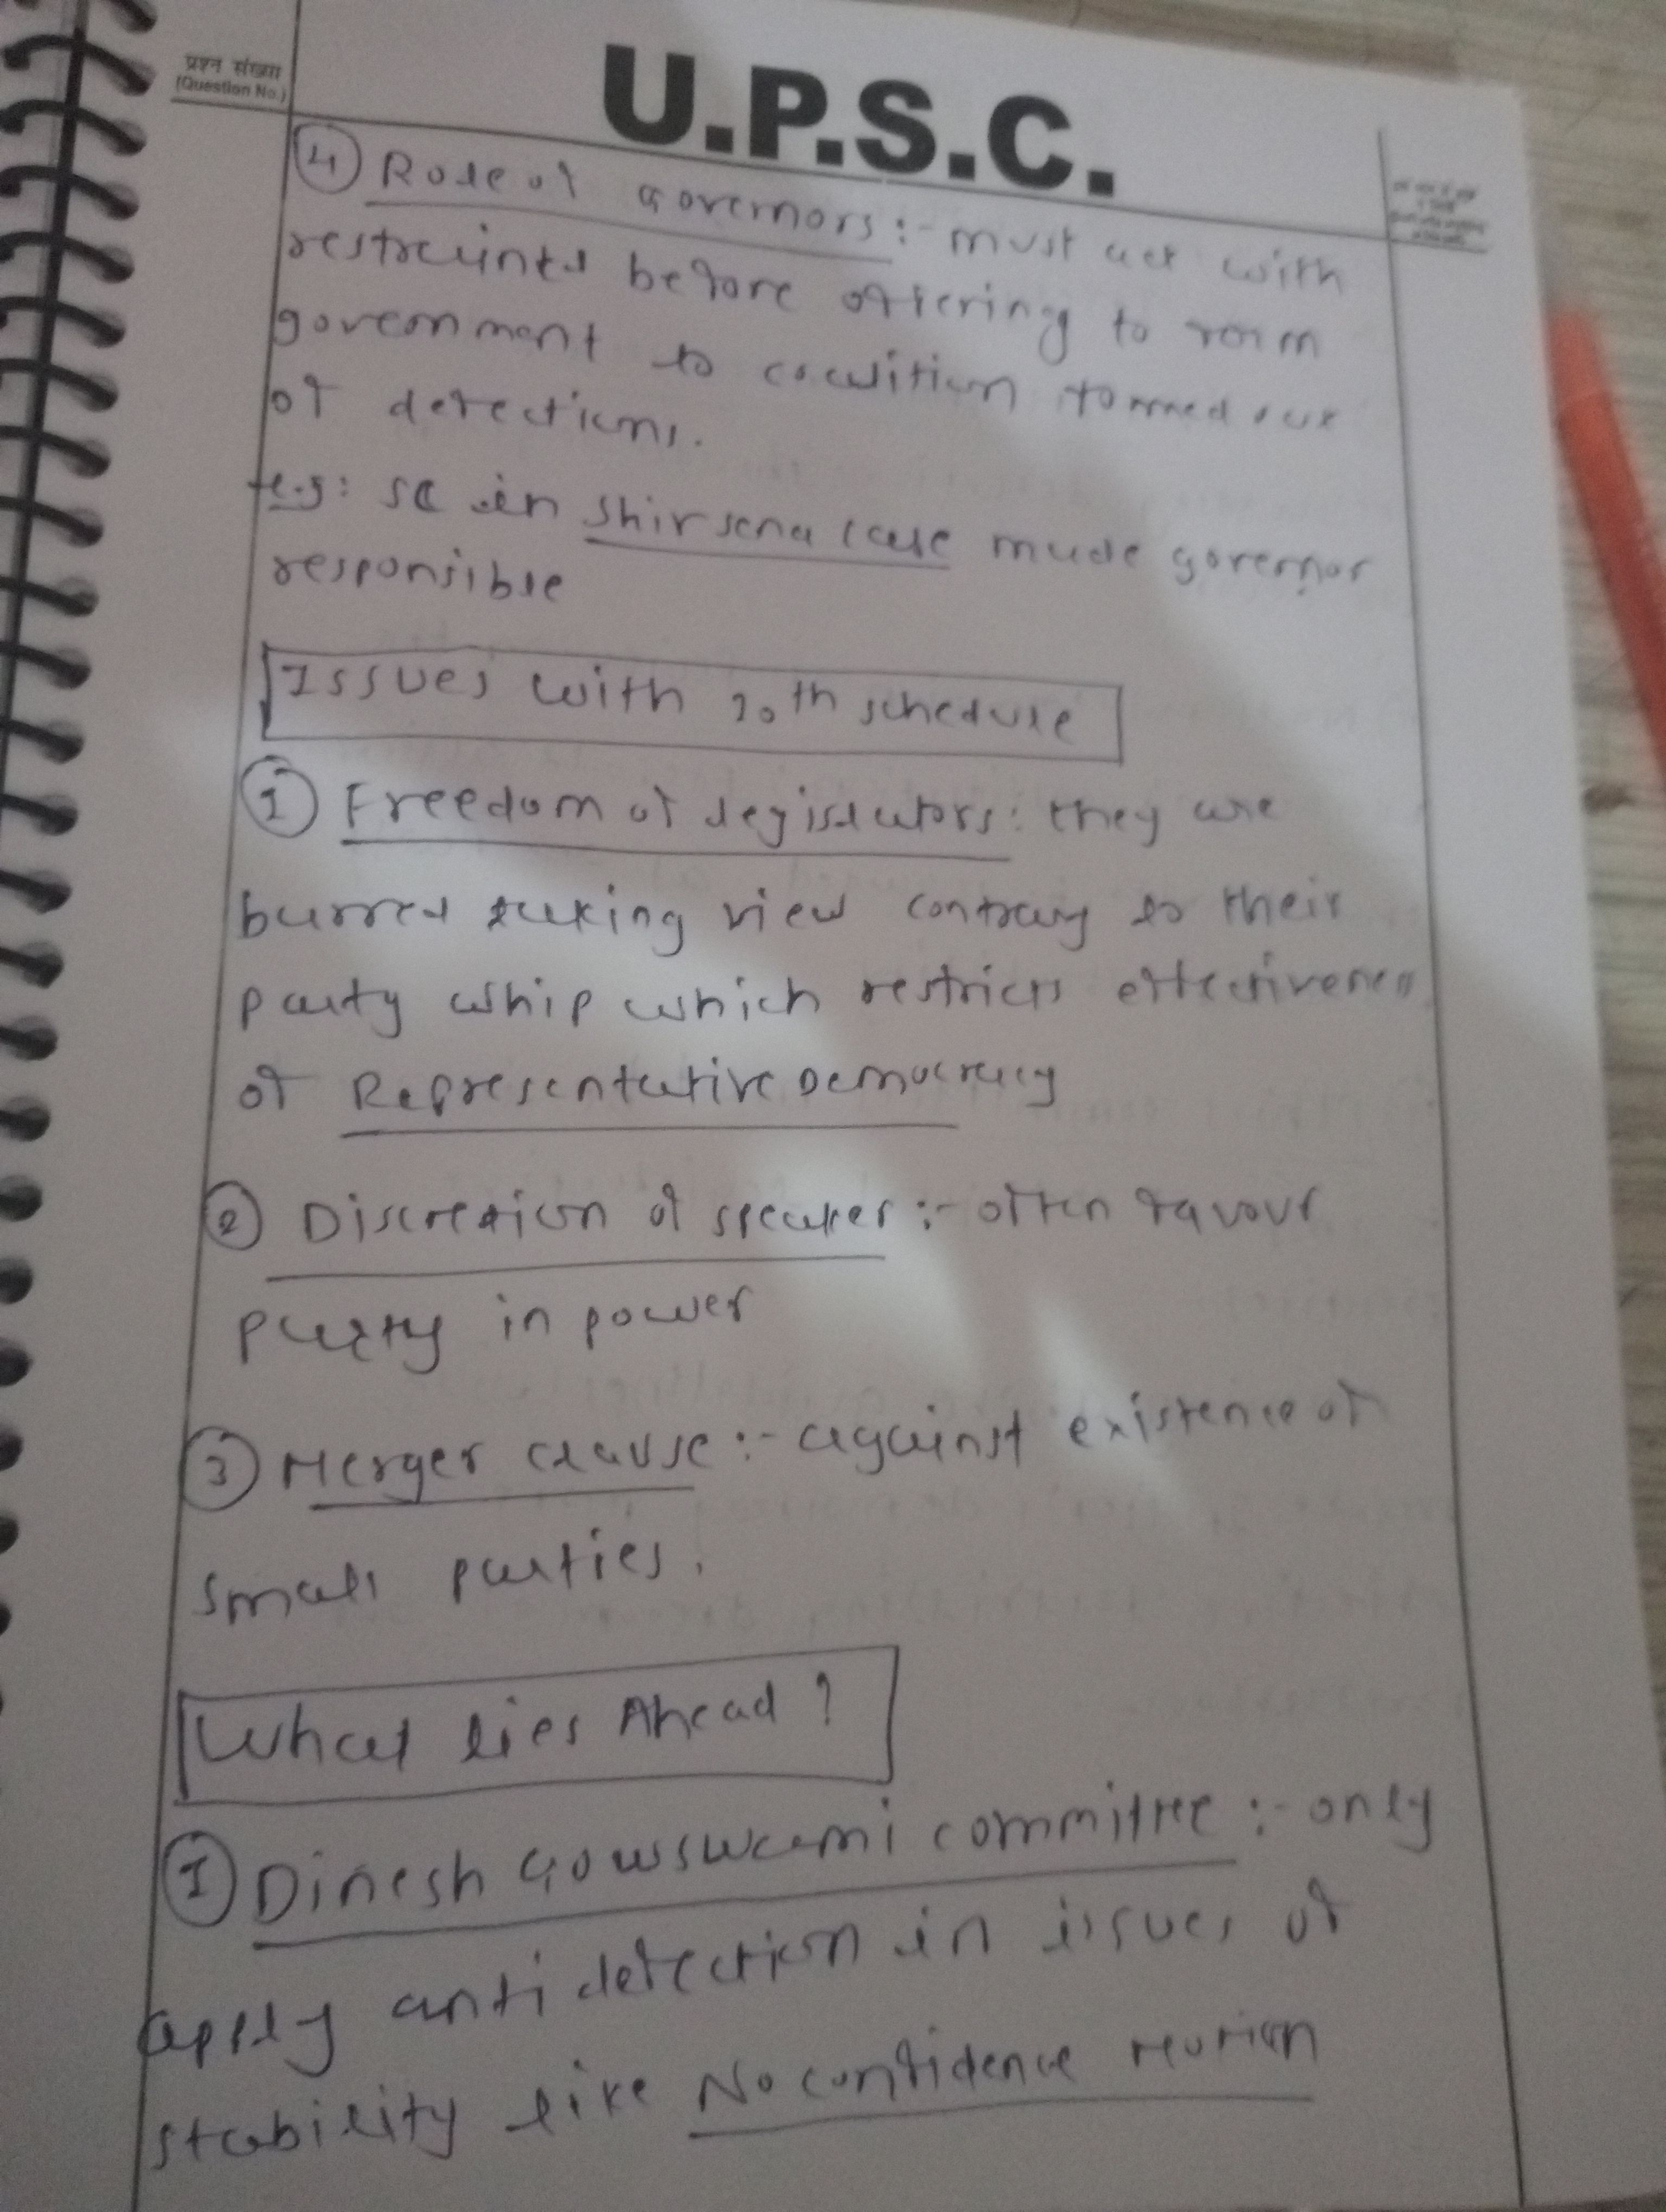 प्रश्न संख्या
(Question No.)
U.P.S.C.
④ Role of Governors :- must act with
restraints before offering to form
government to coalition formed out
of defections.
e.g: SC in Shivsena case made governor
responsible
Issues with 10th schedule
① Freedom of legislators : they are
barred taking view contrary to their
party whip which restricts effectiveness
of Representative Democracy
② Discretion of speaker :- often favour
party in power
③ Merger clause :- against existence of
small parties.
What lies Ahead ?
① Dinesh Gowswami committee :- only
apply anti defection in issues of
stability like No confidence Motion